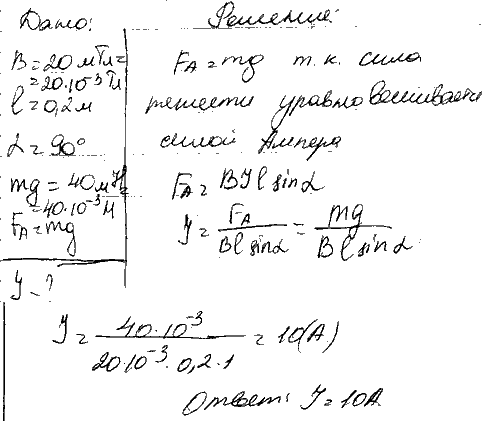 Дано:
B = 20 мТл =
= 20·10⁻³ Тл
l = 0,2 м
α = 90°
mg = 40 мН
= 40·10⁻³ Н
F_A = mg
I - ?
Решение:
F_A = mg т.к. сила
тяжести уравновешивается
силой Ампера
F_A = BIl sinα
I = F_A / (Bl sinα) = mg / (Bl sinα)
I = 40·10⁻³ / (20·10⁻³·0,2·1) = 10(А)
Ответ: I = 10А